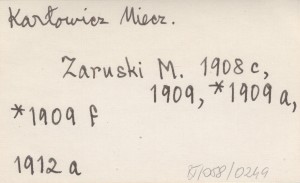 Karłowicz Miecz.
Zaruski M. 1908 c,
1909, *1909 a,
*1909 f
1912 a
/058/0249